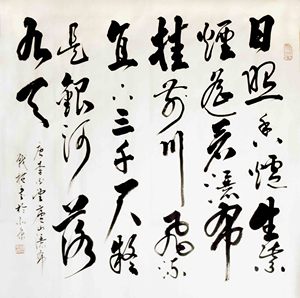 日照香爐生紫
煙遥看瀑布
挂前川飛流
直下三千尺疑
是銀河落
九天
唐李白望廬山瀑布
書於北京